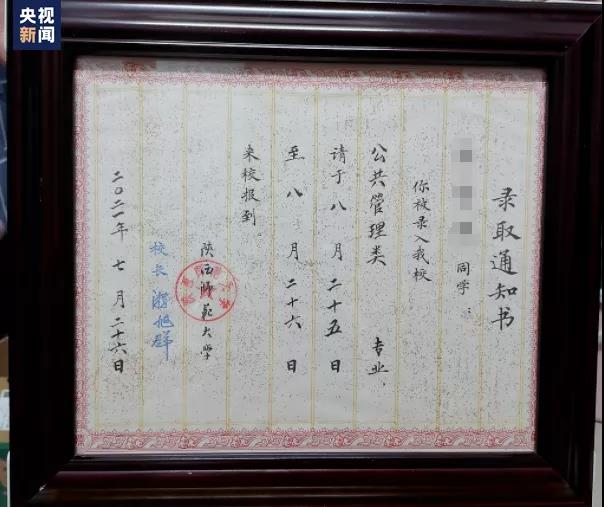 央视
新闻
录取通知书
同学：
你被录入我校
公共管理类 专业，
请于八月二十五日
至八月二十六日
来校报到。
陕西师范大学
校长 游旭群
二〇二一年七月二十六日